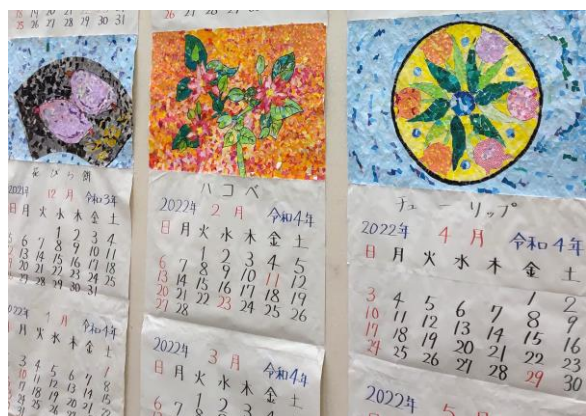 25 26 27 28 29 30 31
花びら餅
2021年 12月 令和3年
日 月 火 水 木 金 土
1 2 3 4
5 6 7 8 9 10 11
12 13 14 15 16 17 18
19 20 21 22 23 24 25
26 27 28 29 30 31
1月 令和4年
日 月 火 水 木 金 土
1
3 4 5 6 7 8
10 11 12 13 14 15
ハコベ
2022年 2月 令和4年
日 月 火 水 木 金 土
1 2 3 4 5
6 7 8 9 10 11 12
13 14 15 16 17 18 19
20 21 22 23 24 25 26
27 28
2022年 3月 令和4年
日 月 火 水 木 金 土
1 2 3 4 5
チューリップ
2022年 4月 令和4年
日 月 火 水 木 金 土
1 2
3 4 5 6 7 8 9
10 11 12 13 14 15 16
17 18 19 20 21 22 23
24 25 26 27 28 29 30
2022年 5月